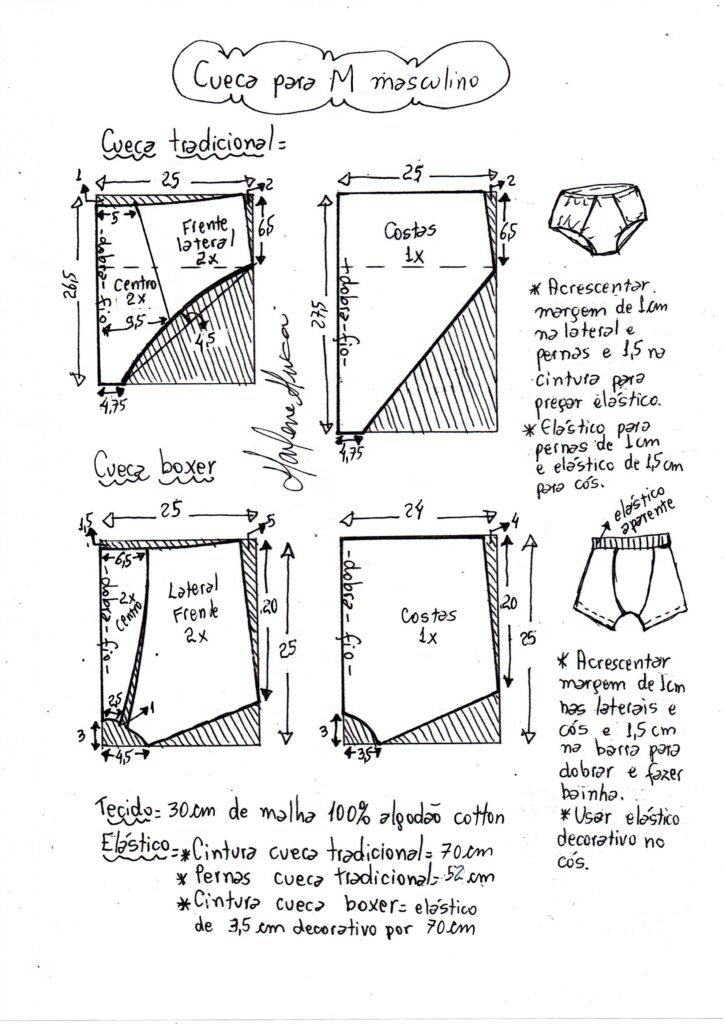 Cueca para M masculino
Cueca tradicional=
25
1
2
5
Frente
lateral
2x
6,5
26,5
-dobra-fio-
Centro
2x
9,5
4,5
4,75
25
2
Costas
1x
6,5
27,5
+dobra-fio-
4,75
* Acrescentar
margem de 1cm
na lateral e
pernas e 1,5 na
cintura para
preçar elástico.
* Elástico para
pernas de 1cm
e elástico de 1,5cm
para cós.
Cueca boxer
25
1,5
5
6,5
-dobra-fio-
2x
centro
Lateral
Frente
2x
20
25
2,5
1
3
4,5
24
4
-dobra-fio-
Costas
1x
20
25
3
3,5
elástico
aparente
* Acrescentar
margem de 1cm
nas laterais e
cós e 1,5cm
na barra para
dobrar e fazer
bainha.
* Usar elástico
decorativo no
cós.
Tecido= 30cm de malha 100% algodão cotton
Elástico=* Cintura cueca tradicional= 70cm
* Pernas cueca tradicional= 52cm
* Cintura cueca boxer= elástico
de 3,5cm decorativo por 70cm